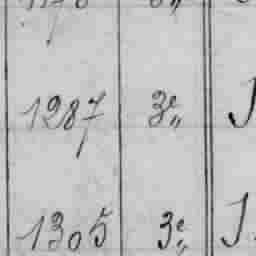 1287 3e„ J
1305 3e„ J.